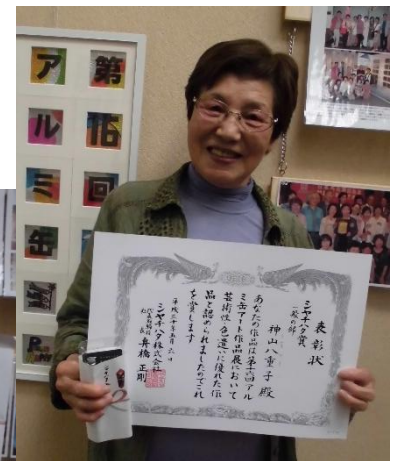 第16回
アルミ缶
表彰状
シヤチハタ賞
一般の部
神山八重子 殿
あなたの作品は第十六回アル
ミ缶アート作品展において
芸術性・色遣いに優れた作
品と認められましたのでこれ
を賞します
平成三十年 六日
シヤチハタ株式会社
代表取締役
社長 舟橋正剛